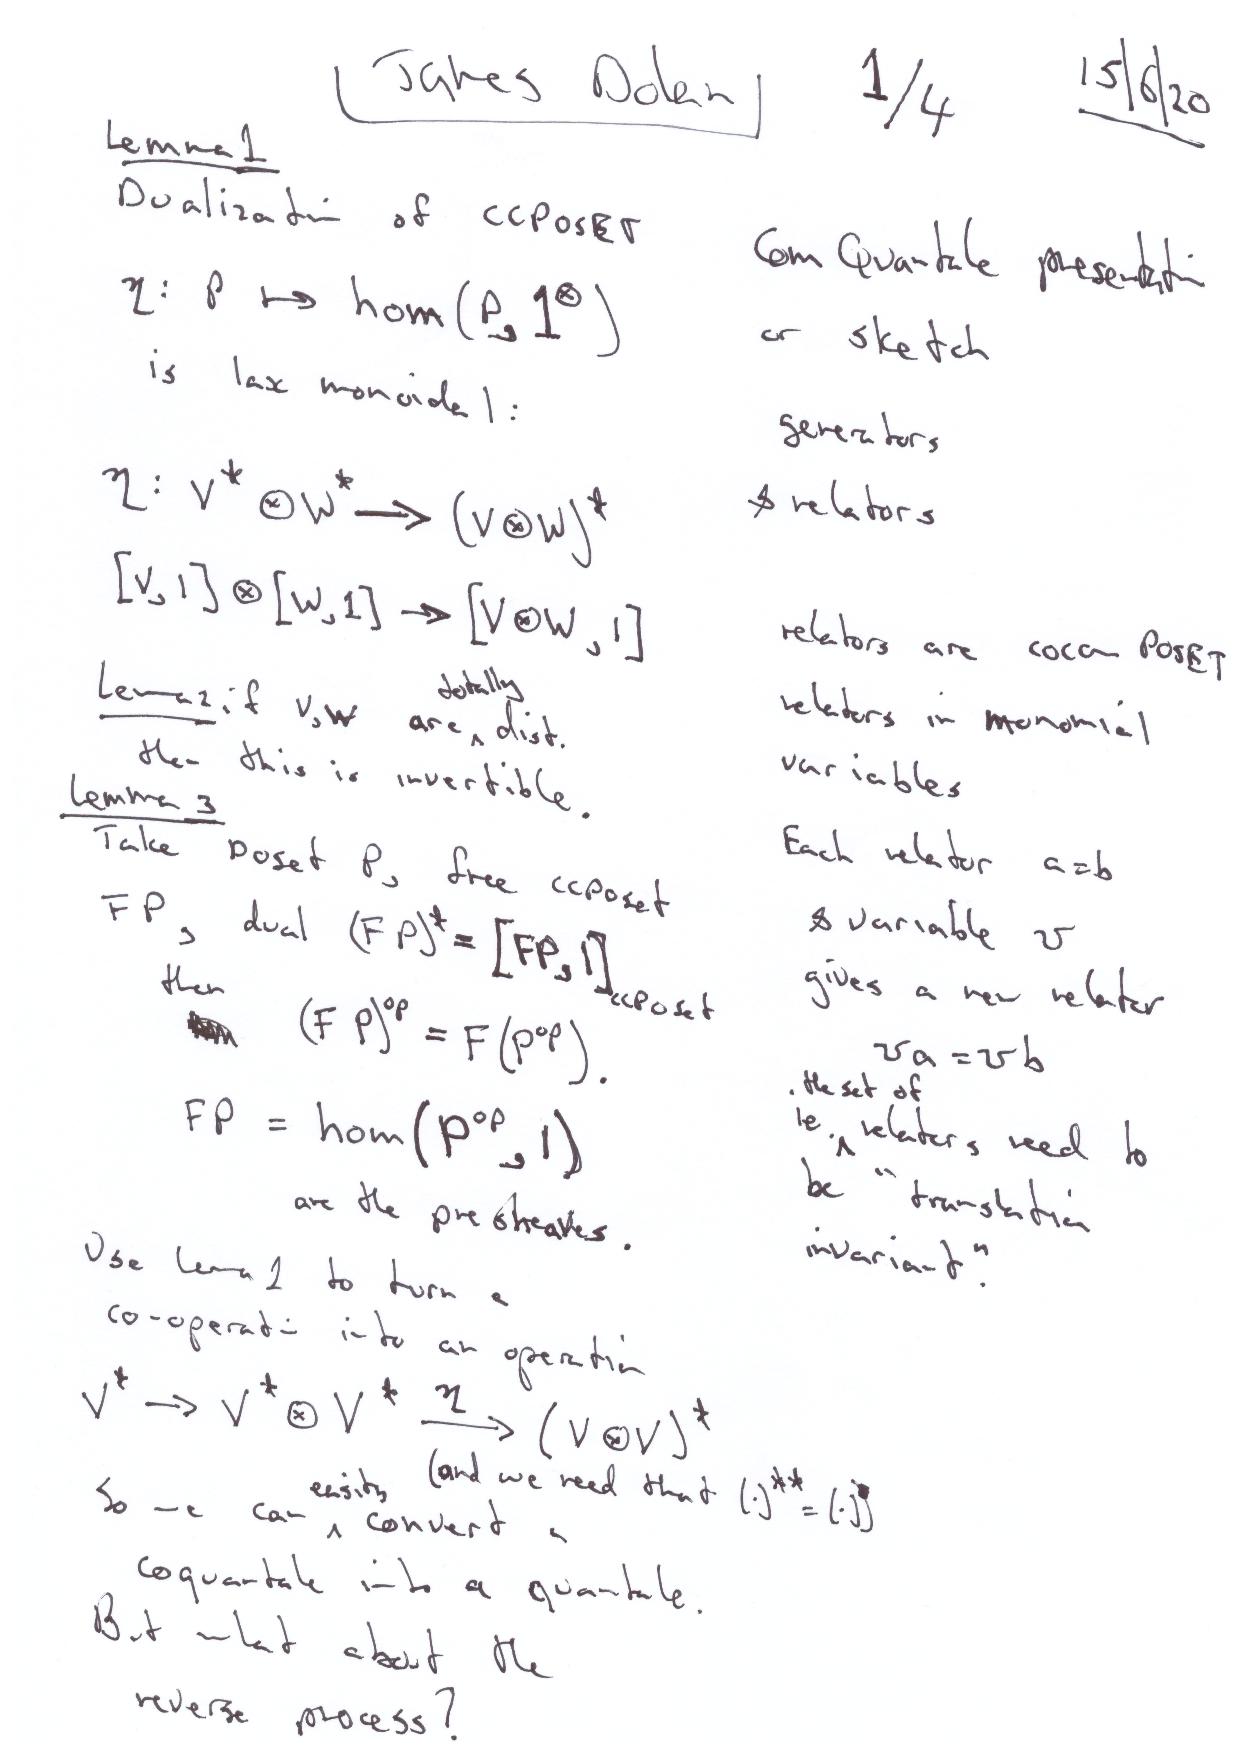 James Dolan 1/4 15/6/20
Lemma 1
Dualization of CCPOSET
η: P ↦ hom(P, 1^⊗)
is lax monoidal:
η: V* ⊗ W* → (V⊗W)*
[V, 1] ⊗ [W, 1] → [V⊗W, 1]
Lemma 2: if V, W are ^ totally dist.
then this is invertible.
Lemma 3
Take poset P, free ccposet
FP, dual (FP)* = [FP, 1] ccposet
then
(FP)^op = F(P^op).
FP = hom(P^op, 1)
are the presheaves.
Use lemma 1 to turn a
co-operation into an operation
V* → V* ⊗ V* →^η (V⊗V)*
(and we need that (·)** = (·))
So we can ^ easily convert a
coquantale into a quantale.
But what about the
reverse process?
Com Quantale presentation
or sketch
generators
& relators
relators are cocon POSET
relators in monomial
variables
Each relator a=b
& variable v
gives a new relator
va = vb
ie. ^ the set of relators need to
be "translation
invariant".